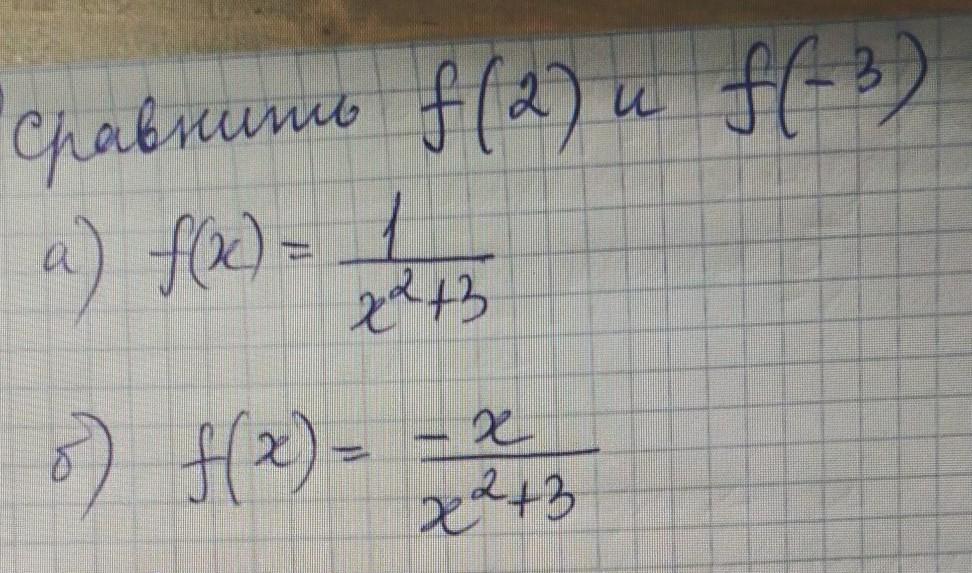 Сравнить f(2) и f(-3)
а) f(x) = 1/(x²+3)
б) f(x) = -x/(x²+3)